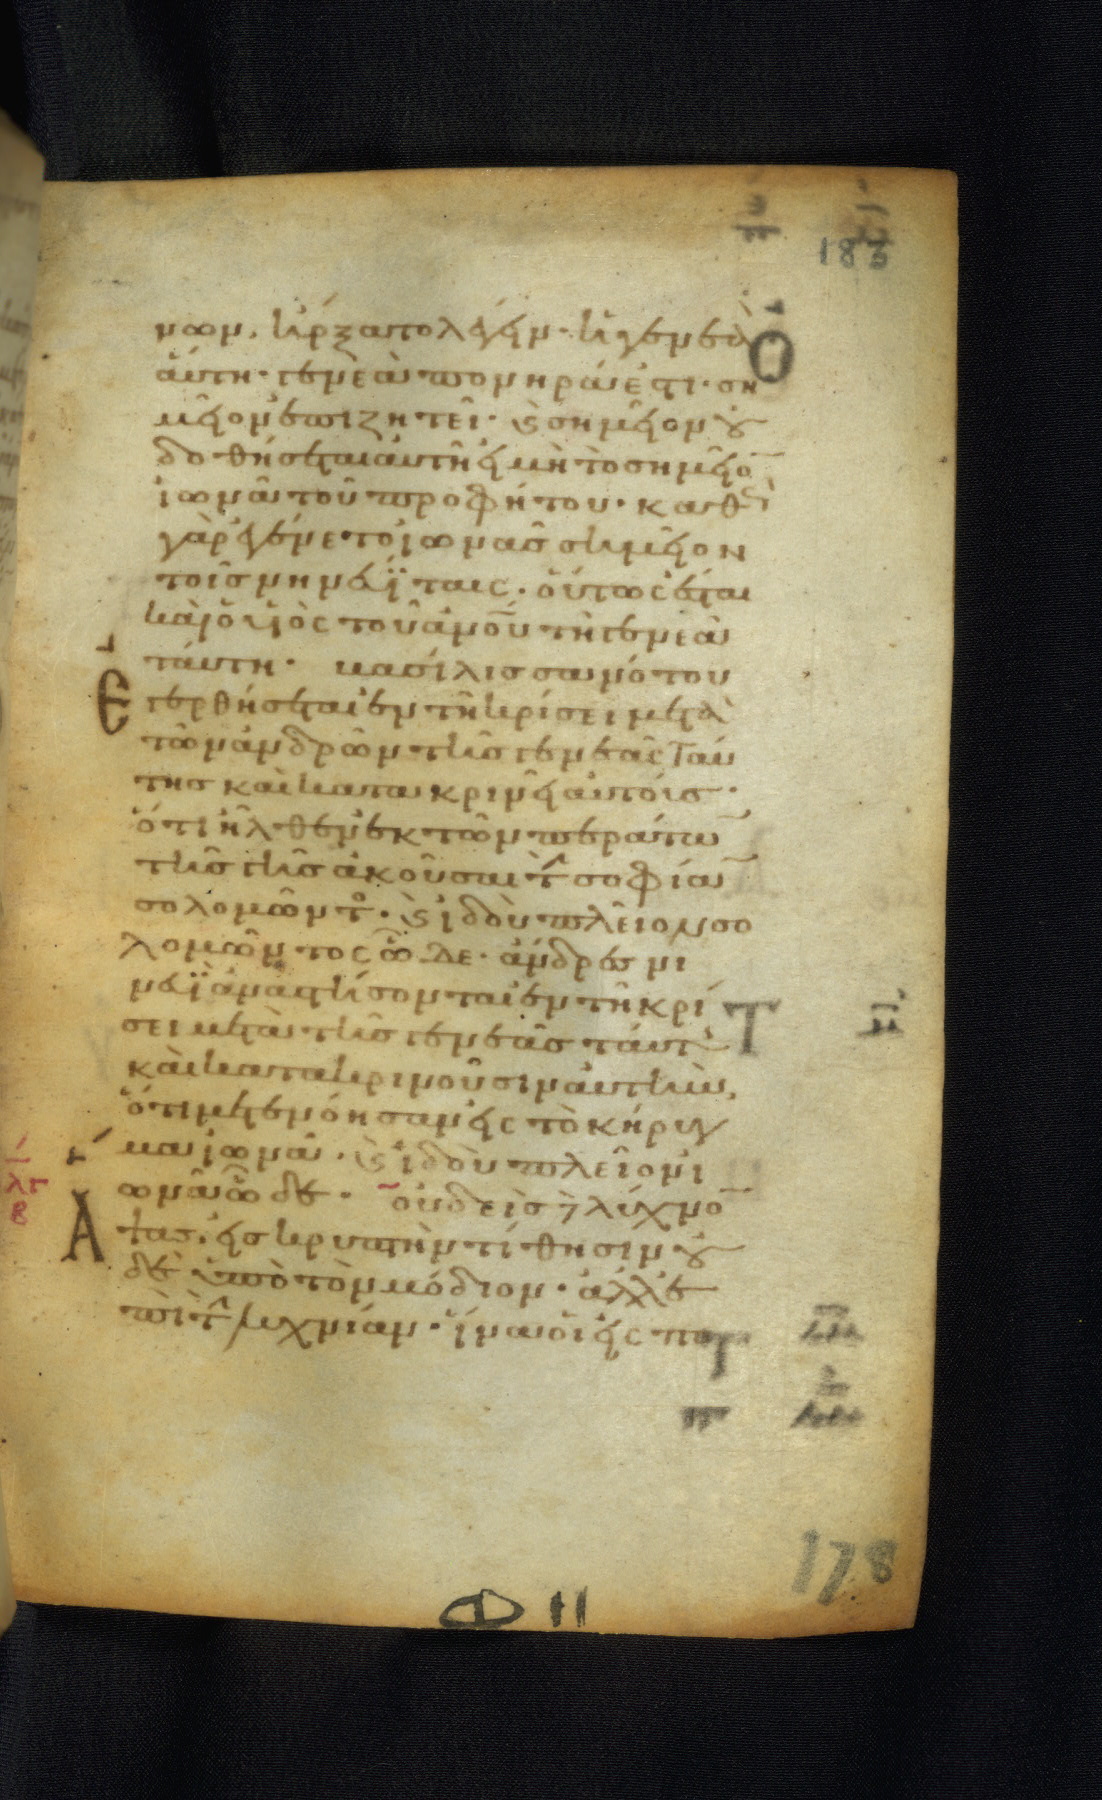 183
μων. ἤρξατο λέγειν· ἡ γενεὰ
αὕτη· γενεὰ πονηρά ἐστι· ση
μεῖον ἐπιζητεῖ· ϗ σημεῖον οὐ
δοθήσεται αὐτῆ εἰ μὴ τὸ σημεῖο̅
ἰωνᾶ τοῦ προφήτου· καθὼς
γὰρ ἐγένετο ἰωνᾶς σημεῖον
τοῖς νηνευΐταις. οὕτως ἔσται
καὶ ὁ υἱὸς τοῦ ἀν̅ου̅ τῆ γενεᾶ
ταύτη· βασίλισσα νότου
ἐγερθήσεται ἐν τῆ κρίσει μετὰ
τῶν ἀνδρῶν τῆς γενεᾶς ταύ
της καὶ κατακρινεῖ αὐτούς·
ὅτι ἦλθεν ἐκ τῶν περάτω̅
τῆς γῆς ἀκοῦσαι τ̀ σοφία̅
σολομῶντο· ϗ ἰδοὺ πλεῖον σο
λομῶντος ὧδε· ἄνδρες νι
νευΐ ἀναστήσονται ἐν τῆ κρί
σει μετὰ τῆς γενεᾶς ταύτ
καὶ κατακρινοῦσιν αὐτὴν,
ὅτι μετενόησαν εἰς τὸ κήρυγ
μα ἰωνᾶ· ϗ ἰδοὺ πλεῖον ἰ
ωνᾶ ὧδε· οὐδεὶς δὲ λύχνο̅
ἅψας, εἰς κρυπτὴν τίθησιν οὐ
δὲ ὑπὸ τὸν μόδιον· ἀλλ' ἐ
πὶ τ̀ λυχνίαν· ἵνα οἱ εἰσπο
178
Φ 11